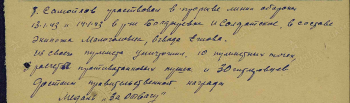 т. Самойлов участвовал в прорыве линии обороны
13.1.45 и 14.1.45 в р-не Богушувске и Солдатские, в составе
Экипажа Миколаевич, Взвода Ежова.
Из своего пулемета уничтожил, 10 пулеметных точек,
расчета противотанковых пушек и 30 гитлеровцев
Достоин правительственной награды
Медаль „За Отвагу"